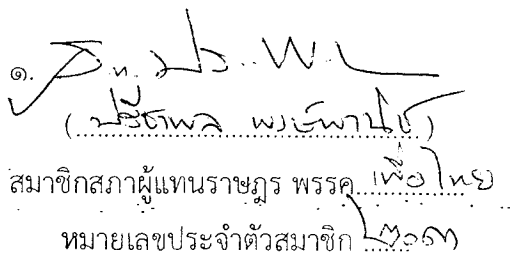 ๑.
(ปรีชาพล พงษ์พานิช)
สมาชิกสภาผู้แทนราษฎร พรรค เพื่อไทย
หมายเลขประจำตัวสมาชิก ๒๐๓